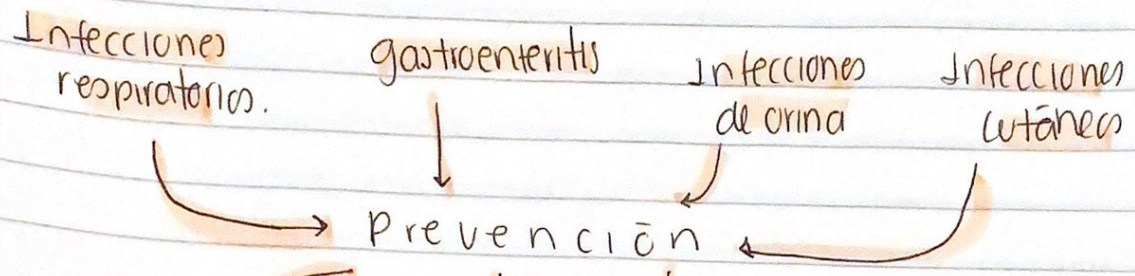 Infecciones
respiratorias.
gastroenteritis
Infecciones
de orina
Infecciones
cutáneas
Prevención